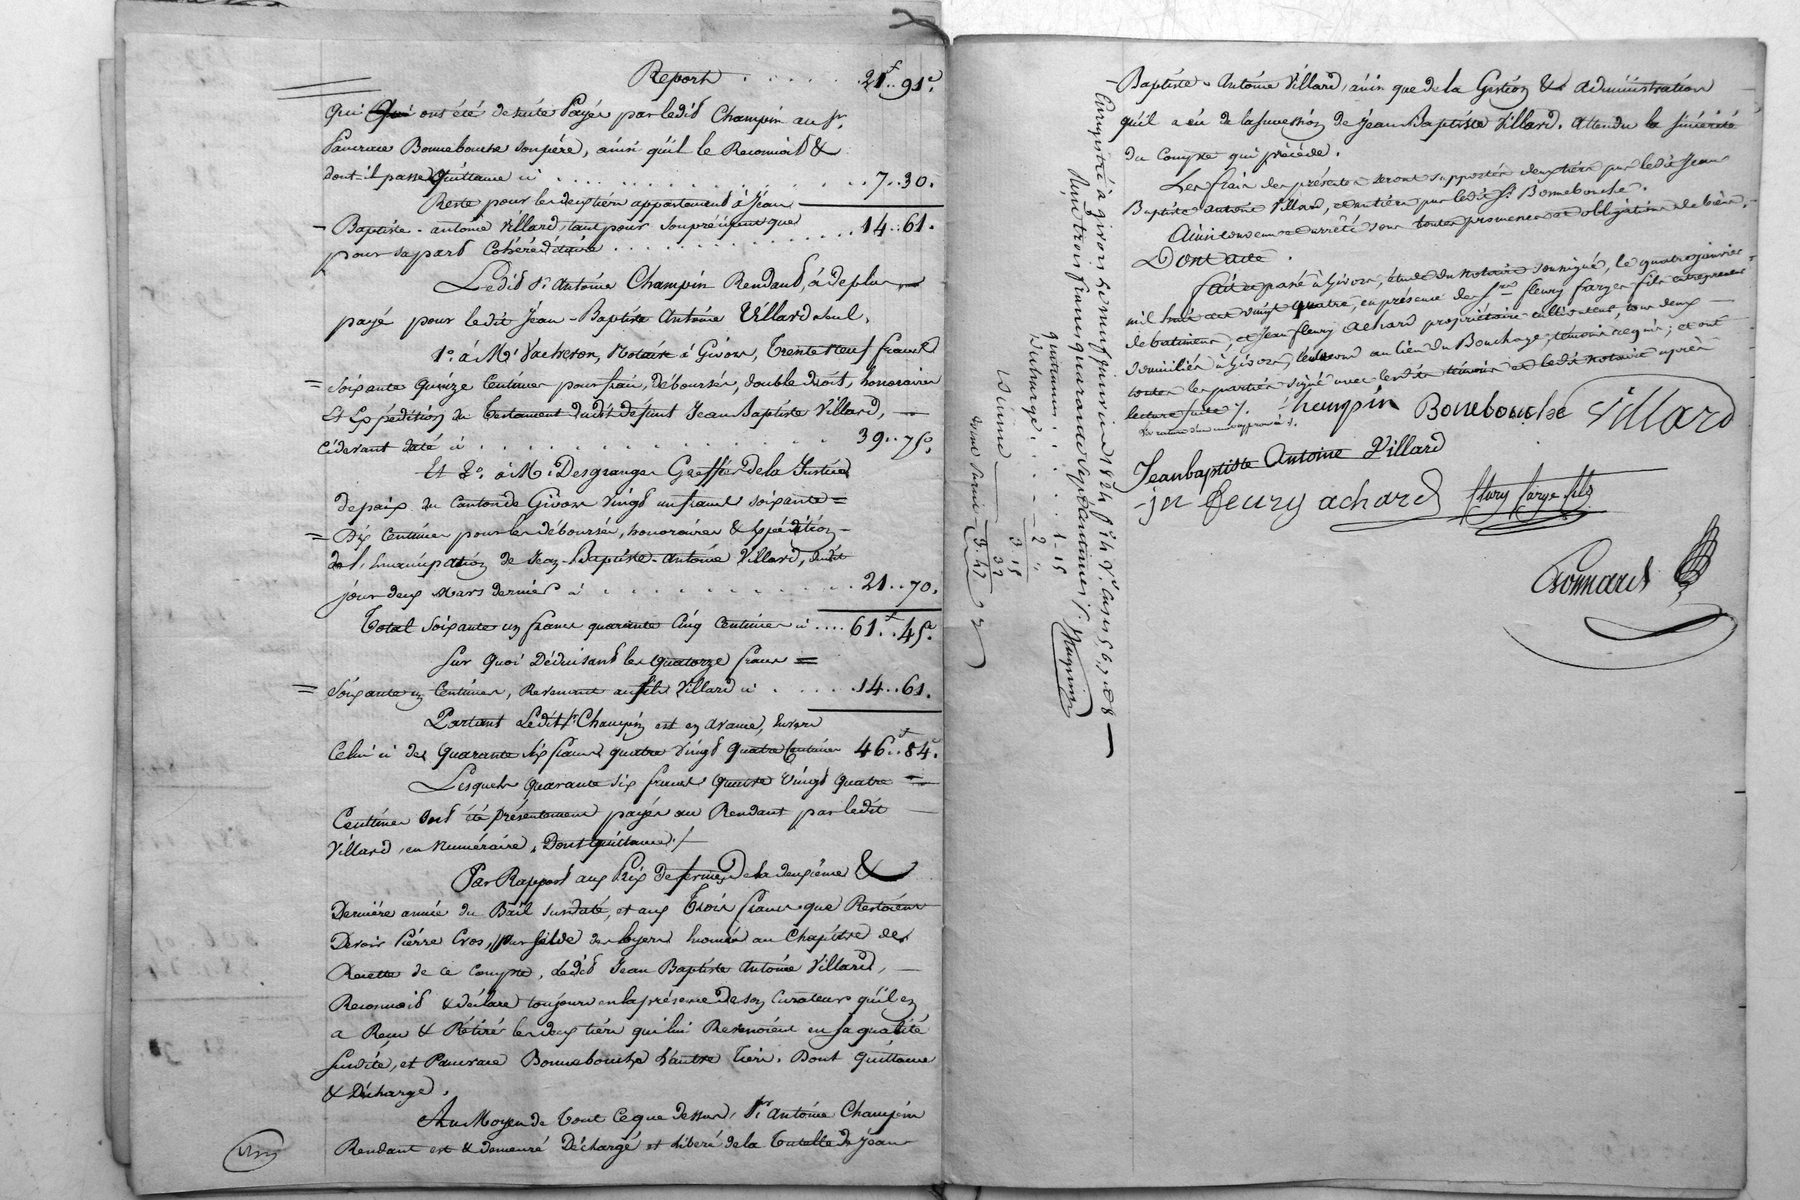 Report . . . . . 21f..91c.
Qui ont été de suite Payés par ledit Champin au Sr
Pancrace Bonnebouche son père, ainsi qu'il le Reconnoit &
dont il passe Quittance ci . . . . . . . . 7..30.
Reste pour les deux tiers appartenant à Jean
Baptiste-antoine Villard, tant pour son préciput que
pour sa part Cohéréditaire . . . . . . . 14..61.
Ledit Sr Antoine Champin Rendant, a de plus
payé pour ledit Jean-Baptiste Antoine Villard seul,
1o. à Me Vacheron, Notaire à Givors, Trente Neuf francs
Soixante Quinze Centimes pour frais, déboursés, double droit, honoraires
Et Expédition du Testament dudit défunt Jean Baptiste Villard,
cidevant daté ci . . . . . . . . 39..75.
Et 2o. à Mr Desgranges Greffier de la Justice
de paix du canton de Givors vingt un francs soixante
Dix Centimes pour les déboursés, honoraires & Expédition
de l'émancipation de Jean-Baptiste-Antoine Villard, dudit
jour deux Mars dernier ci . . . . . . . . 21..70.
Total Soixante un francs quarante Cinq Centimes ci .... 61f..45c.
Sur Quoi Déduisant les Quatorze francs
Soixante un Centimes, Revenant au fils Villard ci . . . . . 14..61.
Partant Ledit Sr Champin est en avance, envers
Celui ci de Quarante Six francs quatre Vingt Quatre Centimes 46f..84c.
Lesquels Quarante six francs Quatre Vingt Quatre
Centimes ont été présentement payés au Rendant par ledit
Villard, en Numéraire, Dont Quittance ./.
Par Rapport aux Prix de fermes de la deuxième &
Dernière année du Bail susdaté, et aux Trois francs que Restoient
Devoir Pierre Cros, pour solde des loyers énoncés au Chapitre de
Recette de ce Compte, Ledit Jean Baptiste Antoine Villard,
Reconnoit & déclare toujours en la présence de son Curateur qu'il en
a Reçu & Rétiré les deux tiers qui lui Revenoient en sa qualité
susdite, et Pancrace Bonnebouche l'autre tiers. Dont Quittance
& Décharge.
Au Moyen de Tout Ce que dessus, Sr Antoine Champin
Rendant est & demeuré Déchargé et libéré de la Tutelle de Jean
Baptiste-Antoine Villard, ainsi que de la Gestion & administration
qu'il a eu de la succession de Jean Baptiste Villard. Attendu la sincérité
du Compte qui précède.
Les frais des présentes seront supportés deux tiers par ledit Jean
Baptiste antoine Villard, et un tiers par ledit Sr Bonnebouche.
Ainsi convenu et arrêté sous toutes promesses et obligations de biens,
Dont acte.
Fait et passé à Givors, étude du notaire soussigné, le quatre janvier
mil huit cent vingt quatre, en présence de Srs fleury farge fils entrepreneur
de batiment, et Jean fleury Achard propriétaire cultivateur, tous deux
domiciliés à Givors, le second au lieu du Bouchage, témoins requis; et ont
toutes les parties signé avec lesdits témoins et ledit notaire après
lecture faite ./.
Champin Bonebouche Villard
Jeanbaptiste Antoine Villard
jn fleury achard fleury farge fils
Enregistré à givors le neuf janvier 1824 fo 14 Vo Cases 5, 6, 7, et 8
Reçu trois francs quarante sept centimes ./.
Quittances . . . . 1-15
Décharge . . . . 2 "
3 15
Décime 32
3-47